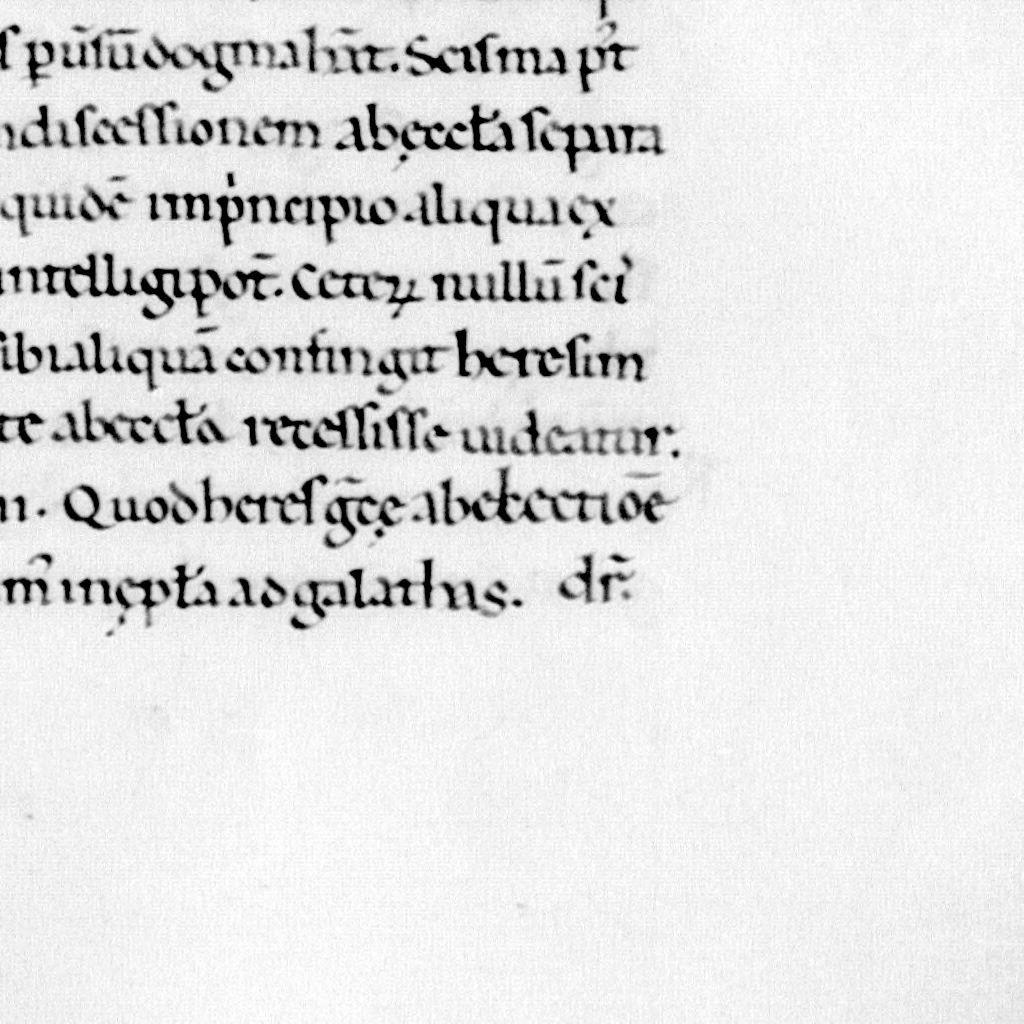 ſ ꝑũſũ dogma hñt. Sciſma pꝰt
ndiſceſſionem ab ęcctᷓa ſepara
quidē in pͥncipio aliqua ex
intelligi pot̃. Ceteꝝ nullū ſciˢ
ſibi aliquā confingit hereſim
te ab ecctᷓa receſſiſſe uideatur.
n. Quod hereſ gͣcę ab electiōe
m̃ in ępłã ad galathas. dr̃: